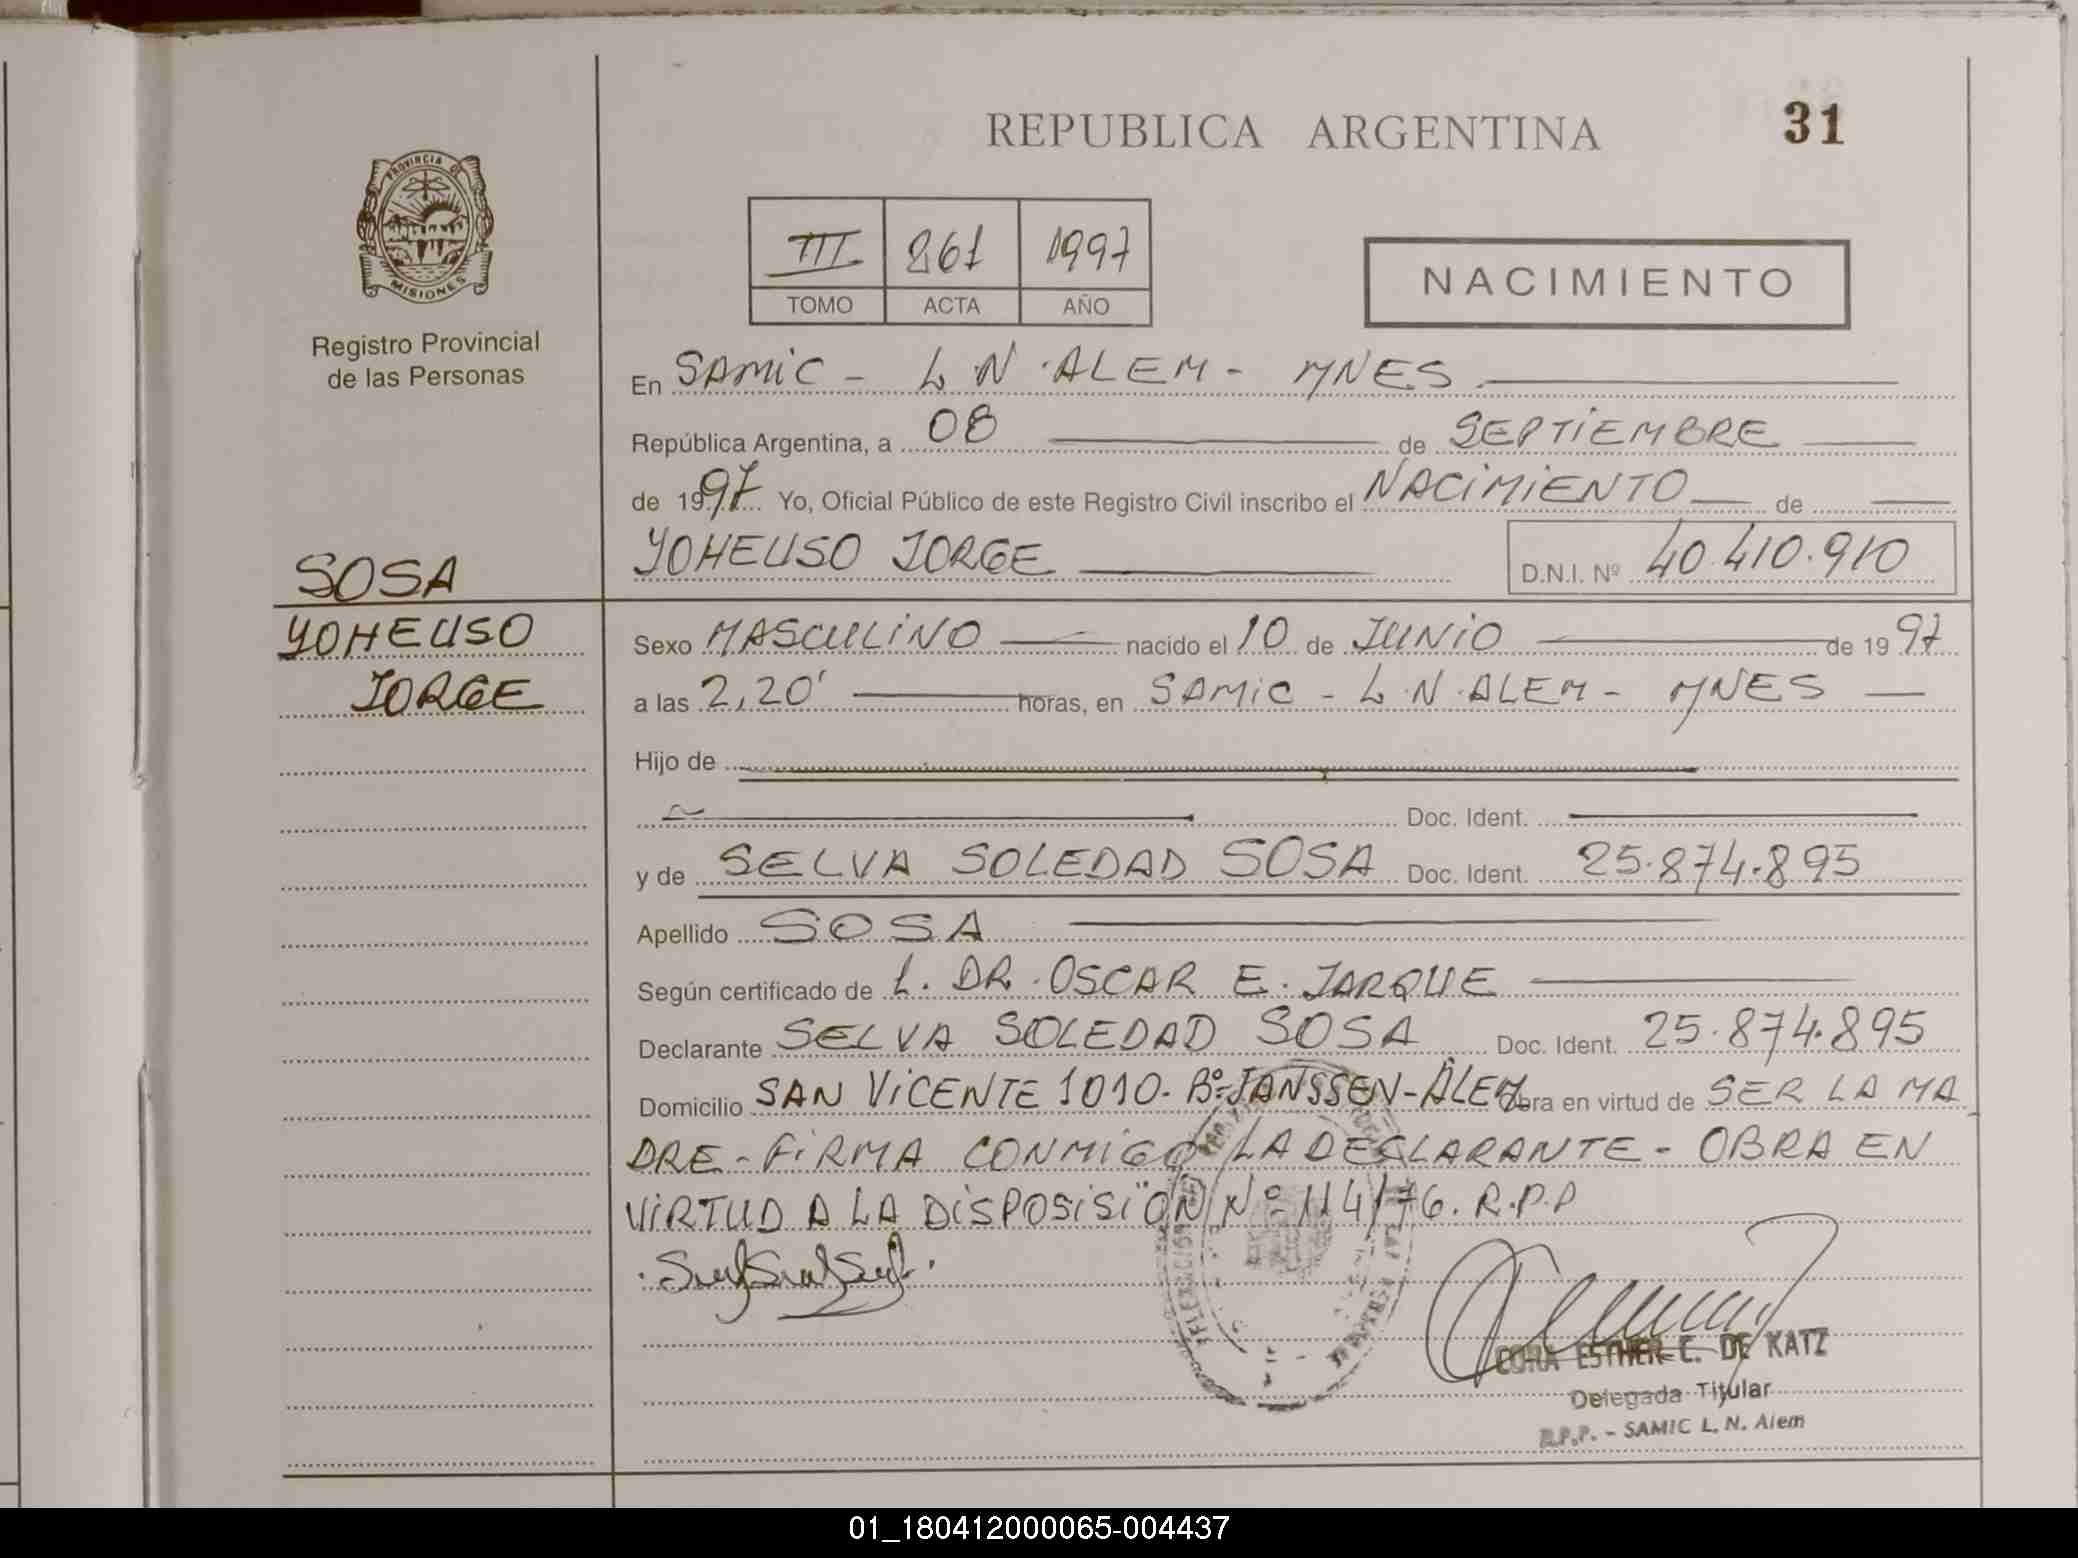 REPUBLICA ARGENTINA
31
PROVINCIA DE
MISIONES
Registro Provincial
de las Personas
III 261 1997
TOMO ACTA AÑO
NACIMIENTO
En SAMIC - L.N.ALEM - MNES
República Argentina, a 08 de SEPTIEMBRE
de 1997 Yo, Oficial Público de este Registro Civil inscribo el NACIMIENTO de
YOHEUSO JORGE D.N.I. Nº 40.410.910
SOSA
YOHEUSO
JORGE
Sexo MASCULINO nacido el 10 de JUNIO de 1997
a las 2,20' horas, en SAMIC - L.N.ALEM - MNES
Hijo de
Doc. Ident.
y de SELVA SOLEDAD SOSA Doc. Ident. 25.874.895
Apellido SOSA
Según certificado de L. DR. OSCAR E. JARQUE
Declarante SELVA SOLEDAD SOSA Doc. Ident. 25.874.895
Domicilio SAN VICENTE 1010. Bº JANSSEN-ALEM Obra en virtud de SER LA MA
DRE - FIRMA CONMIGO LA DECLARANTE - OBRA EN
VIRTUD A LA DISPOSISIÓN Nº 114/76. R.P.P
CORA ESTHER C. DE KATZ
Delegada Titular
R.P.P. - SAMIC L. N. Alem
01_180412000065-004437